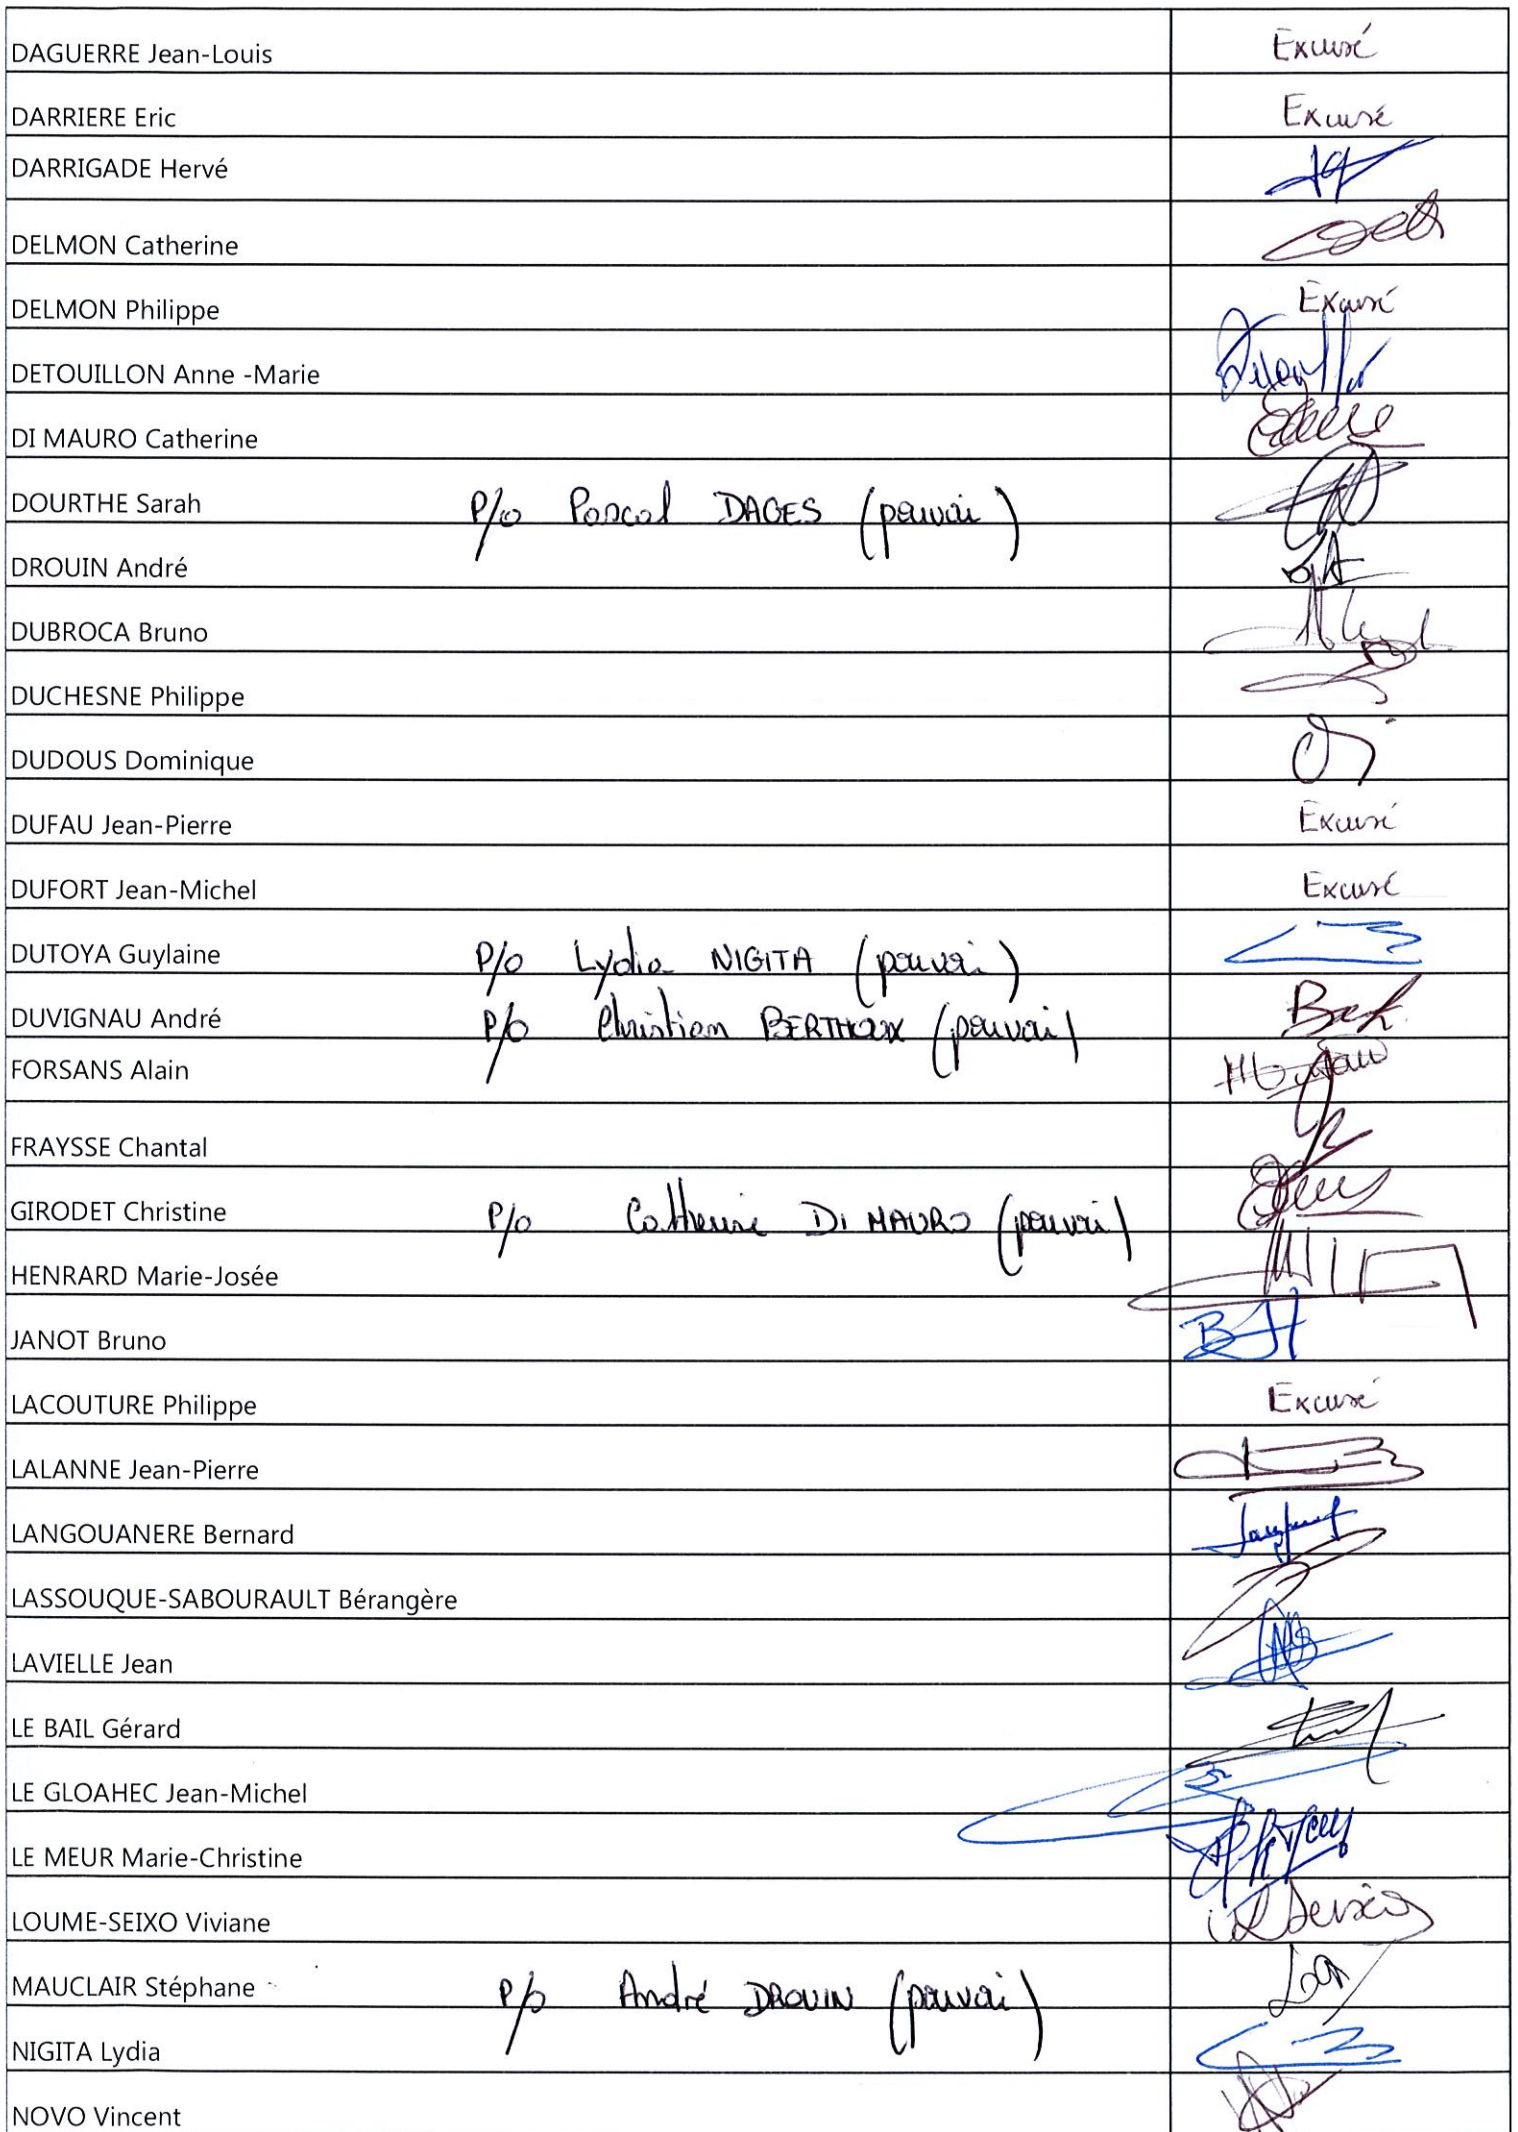 DAGUERRE Jean-Louis Excusé
DARRIERE Eric Excusé
DARRIGADE Hervé
DELMON Catherine
DELMON Philippe Excusé
DETOUILLON Anne -Marie
DI MAURO Catherine
DOURTHE Sarah P/o Pascal DAGES (pouvoir)
DROUIN André
DUBROCA Bruno
DUCHESNE Philippe
DUDOUS Dominique
DUFAU Jean-Pierre Excusé
DUFORT Jean-Michel Excusé
DUTOYA Guylaine P/o Lydia NIGITA (pouvoir)
DUVIGNAU André P/o Christian BERTHOUX (pouvoir)
FORSANS Alain
FRAYSSE Chantal
GIRODET Christine P/o Catherine DI MAURO (pouvoir)
HENRARD Marie-Josée
JANOT Bruno
LACOUTURE Philippe Excusé
LALANNE Jean-Pierre
LANGOUANERE Bernard
LASSOUQUE-SABOURAULT Bérangère
LAVIELLE Jean
LE BAIL Gérard
LE GLOAHEC Jean-Michel
LE MEUR Marie-Christine
LOUME-SEIXO Viviane
MAUCLAIR Stéphane P/o André DROUIN (pouvoir)
NIGITA Lydia
NOVO Vincent